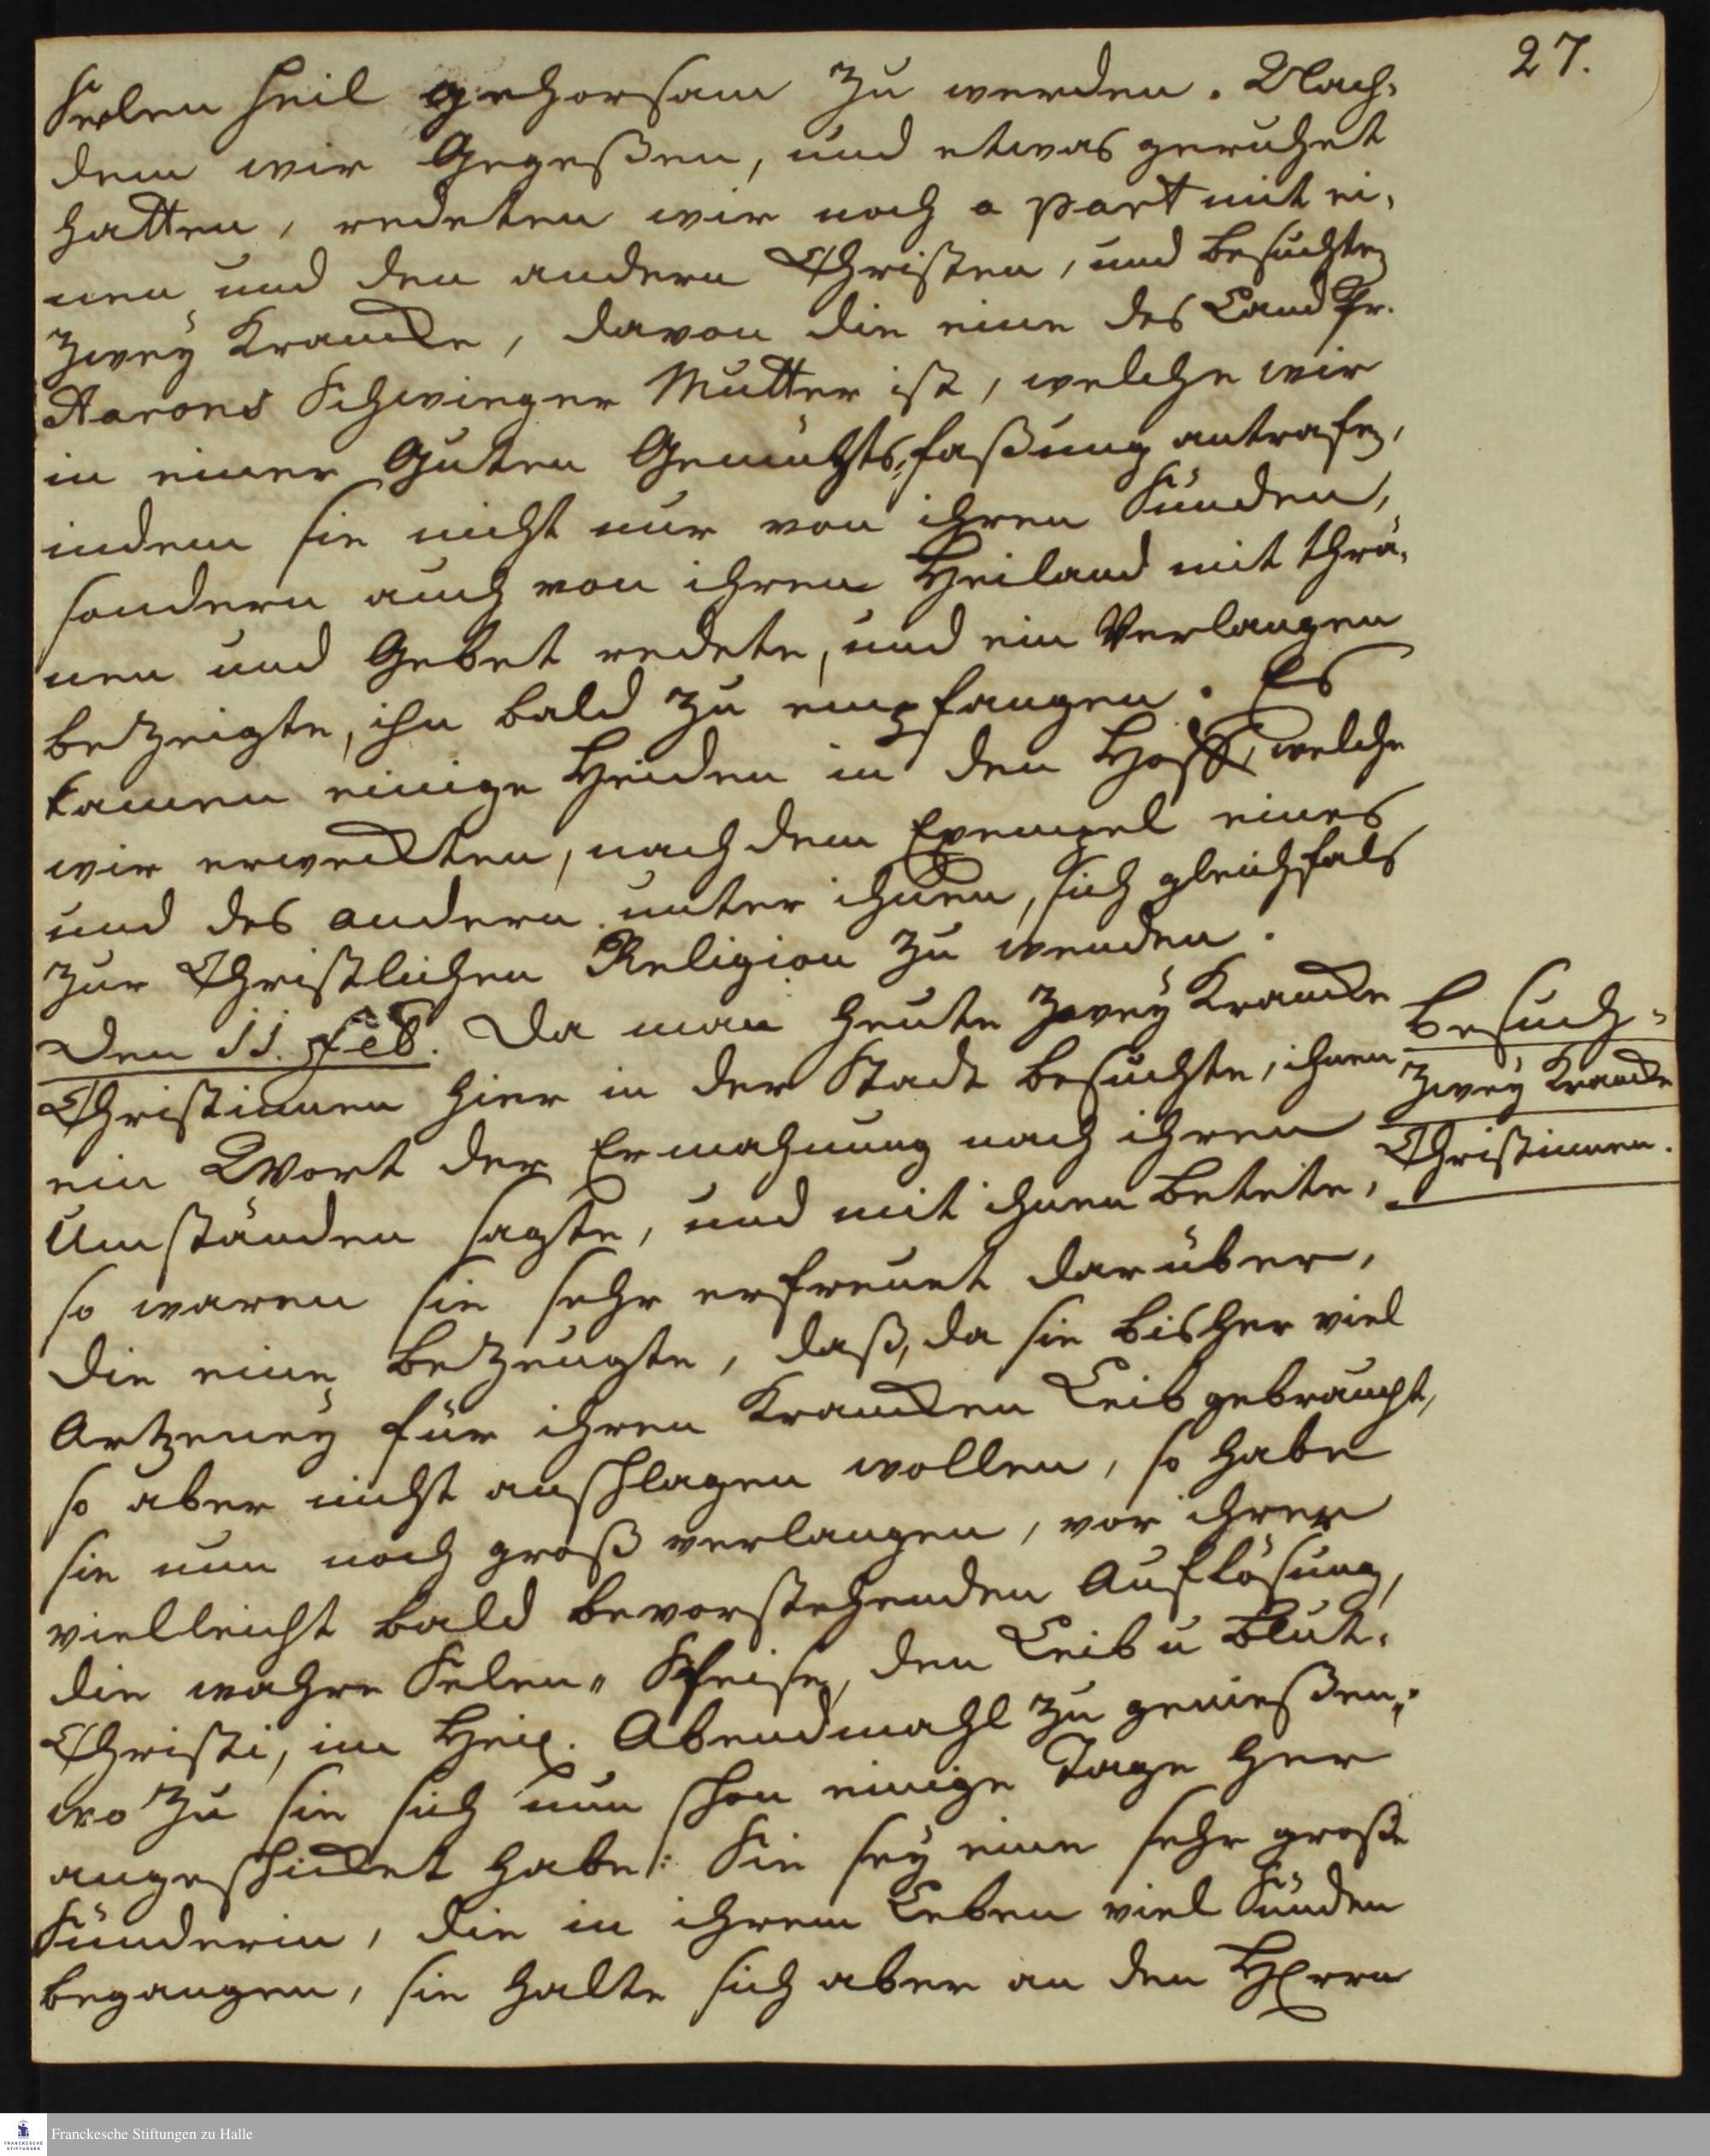 27.
Seelen Heil gehorsam zu werden. Nach-
dem wir Gegeßen, und etwas geruhet
hatten, redeten wir noch a part mit ei-
nen und den andern Christen, und besuchten
zwey Krancke, davon die eine des Land Pr.
Aarons Schwieger Mutter ist, welche wir
in einer Guten Gemüthsfaßung antrafen,
indem sie nicht nur von ihren Sünden,
sondern auch von ihrem Heiland mit thrä-
nen und Gebet redete, und ein Verlangen
bezeigte, ihn bald zu empfangen. Es
kamen einige Heiden in den Hoff, welche
wir erweckten, nach dem Exempel eines
und des andern unter ihnen, sich gleichfals
zur Christlichen Religion zu wenden.
Den 11. Feb. Da man heute zwey Krancke
Christinnen hier in der Stadt besuchte, ihnen
ein Wort der Ermahnung nach ihren
Umständen sagte, und mit ihnen betete,
so waren sie sehr erfreuet darüber,
die eine bezeugte, daß, da sie bisher viel
Artzeney für ihren Krancken Leib gebraucht,
so aber nicht anschlagen wollen, so habe
sie nun noch groß verlangen, vor ihrer
vielleicht bald bevorstehenden Auflösung,
die wahre Selen-Speise, den Leib u Blut
Christi, im Heil. Abendmahl zu genießen,
wo zu sie sich nun schon einige Tage her
angeschicket habe: Sie sey eine sehr große
Sünderin, die in ihrem Leben viel Sünden
begangen, sie halte sich aber an den HErrn
Besuch-
zwey Krancke
Christinnen.
Franckesche Stiftungen zu Halle
FRANCKESCHE
STIFTUNGEN